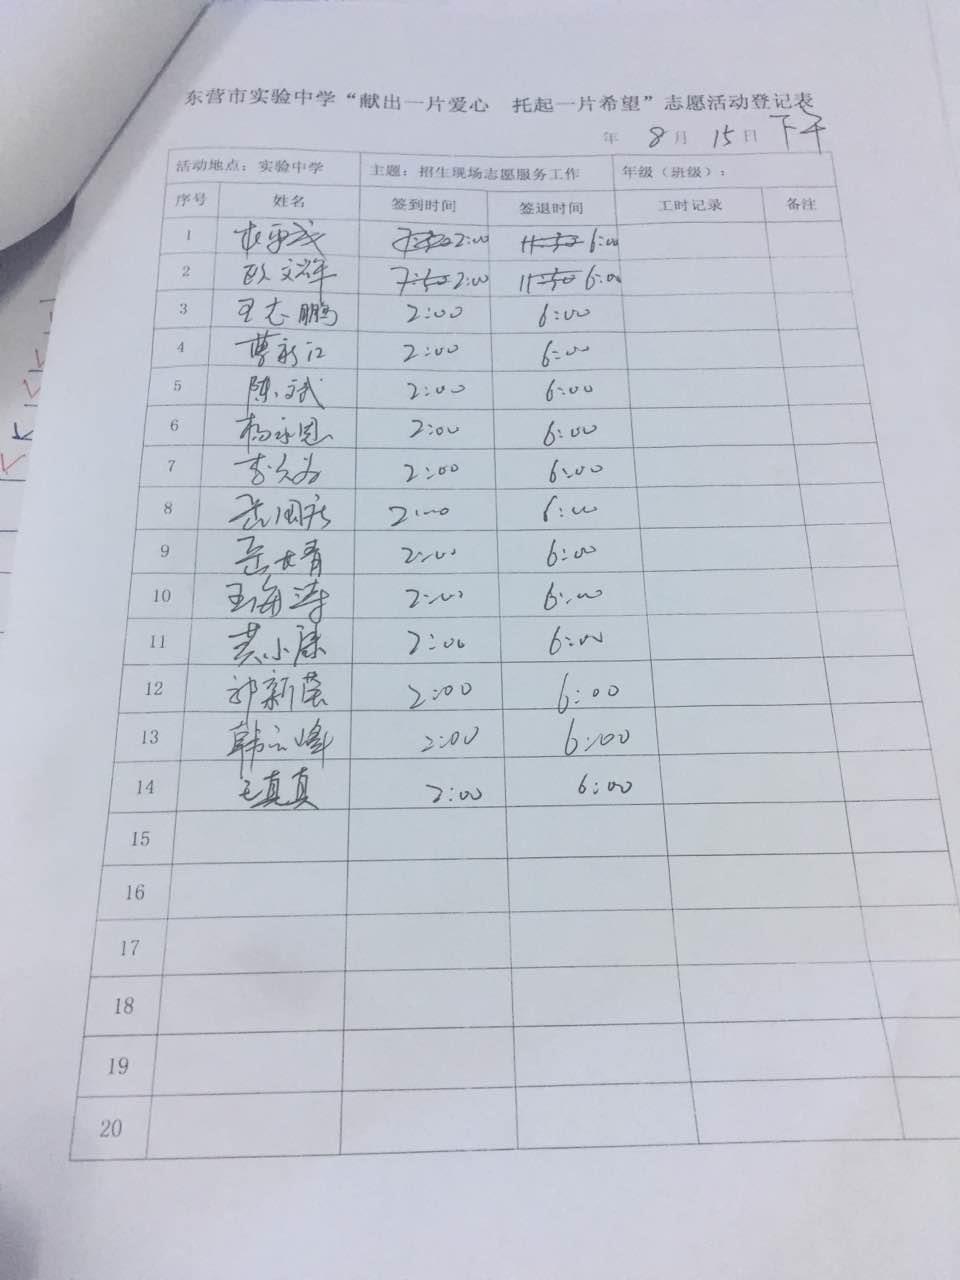 东营市实验中学“献出一片爱心 托起一片希望”志愿活动登记表
年 8月 15日 下午
活动地点：实验中学 主题：招生现场志愿服务工作 年级（班级）：
序号 姓名 签到时间 签退时间 工时记录 备注
1 2:00 6:00
2 7:50 2:00 11:50 6:00
3 王志鹏 2:00 6:00
4 曹新江 2:00 6:00
5 陈文武 2:00 6:00
6 杨永恩 2:00 6:00
7 李久为 2:00 6:00
8 2:00 6:00
9 2:00 6:00
10 王海涛 2:00 6:00
11 黄小康 2:00 6:00
12 郭新蕊 2:00 6:00
13 韩云峰 2:00 6:00
14 毛真真 2:00 6:00
15
16
17
18
19
20